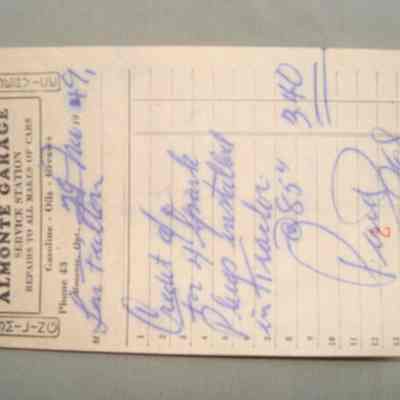 ALMONTE GARAGE
SERVICE STATION
REPAIRS TO ALL MAKES OF CARS
Gasoline - Oils - Greases
Phone 43
Almonte, Ont., 19 49,
M Len Fulton
1 Credit of
3 for 4 Spark
4
5 Plugs installed
6
7 in Tractor
8 @ 85¢ 3.40
9
10
11
12
13
2